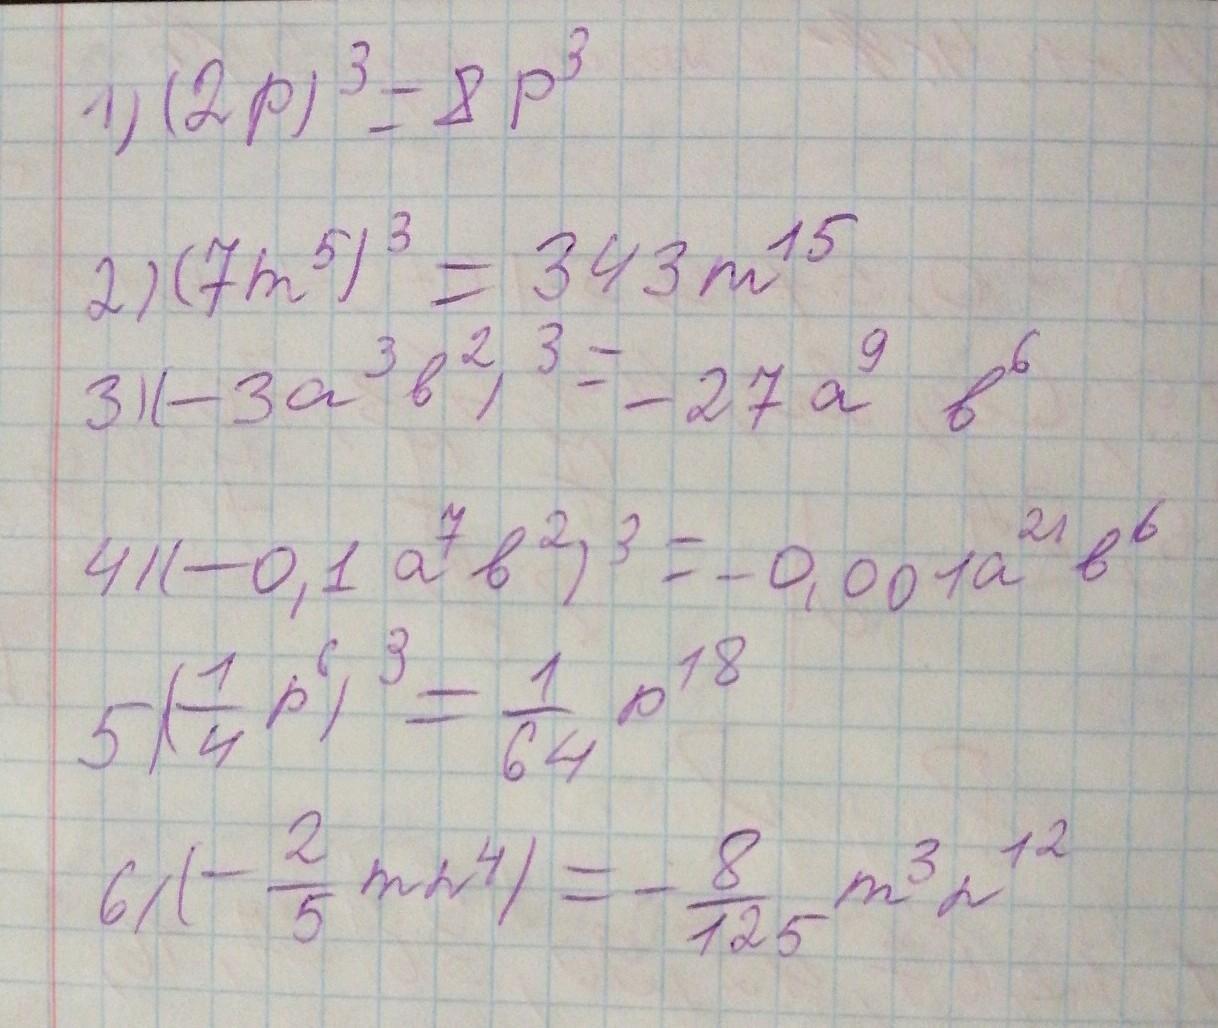 1) (2p)³ = 8p³
2) (7m⁵)³ = 343m¹⁵
3) (-3a³b²)³ = -27a⁹ b⁶
4) (-0,1a⁷b²)³ = -0,001a²¹b⁶
5) (1/4 p⁶)³ = 1/64 p¹⁸
6) (-2/5 mn⁴) = -8/125 m³n¹²